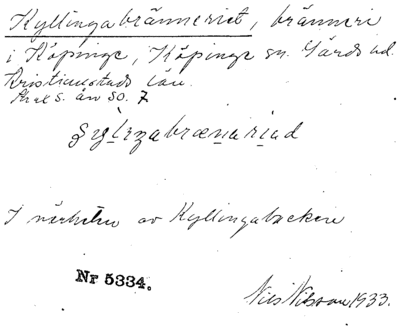 Kyllingabränneriet, bränneri
i Köpinge, Köpinge sn. Gärds hd.
Kristianstads län.
Sknes. än SO. 7
I närheten av Kyllingabacken
Nr 5334.
Nils Nilsson 1933.